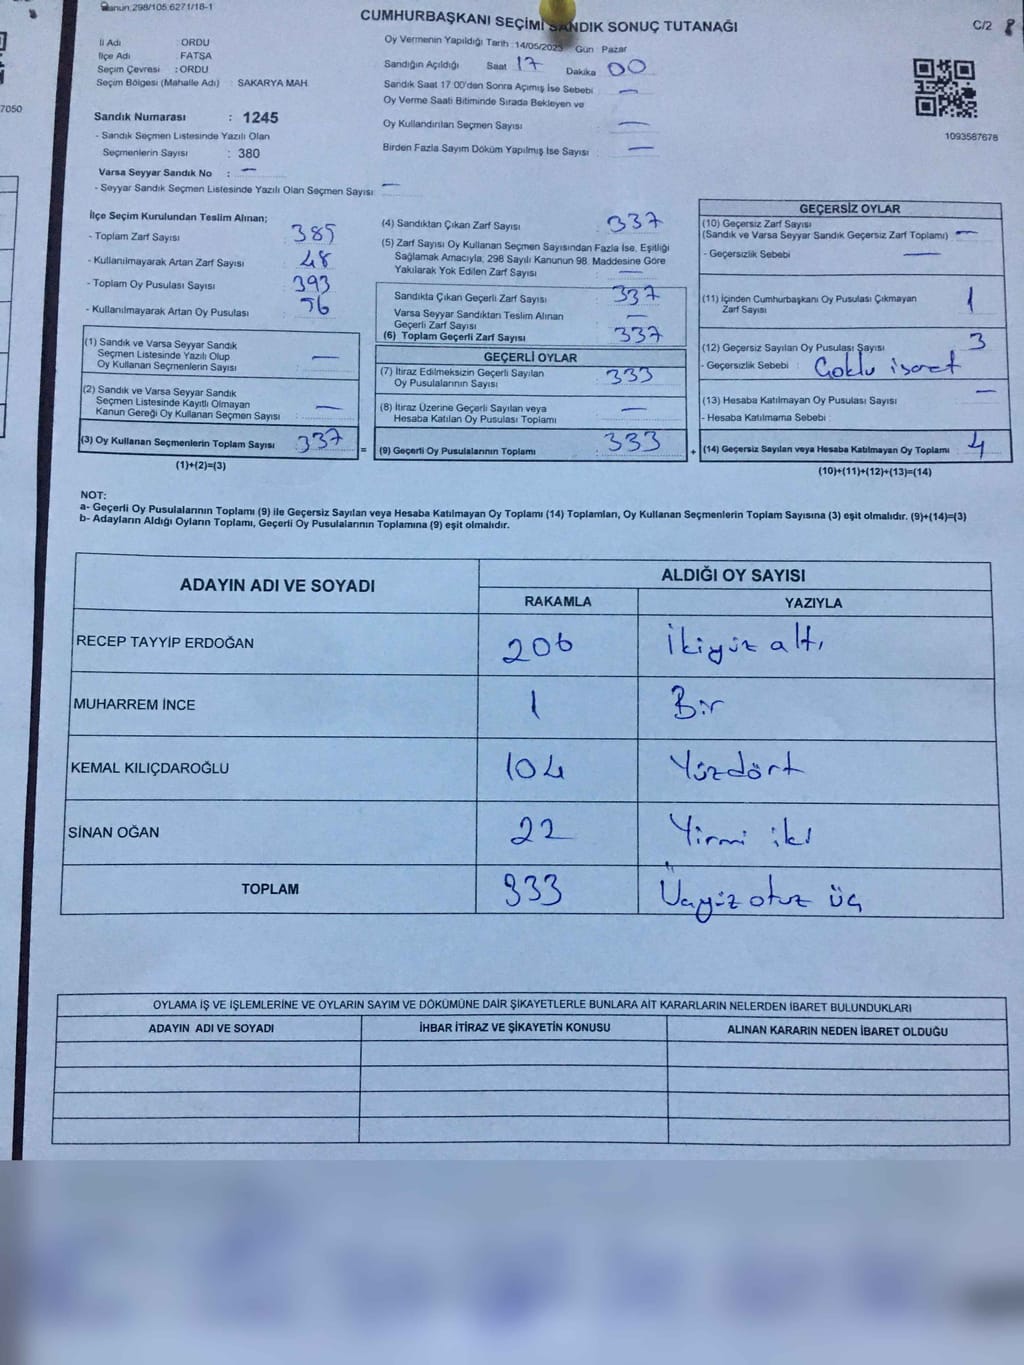 Kanun:298/105;6271/18-1
CUMHURBAŞKANI SEÇİMİ SANDIK SONUÇ TUTANAĞI
C/2 8
7050
İl Adı : ORDU
İlçe Adı : FATSA
Seçim Çevresi : ORDU
Seçim Bölgesi (Mahalle Adı) : SAKARYA MAH
Sandık Numarası : 1245
- Sandık Seçmen Listesinde Yazılı Olan
Seçmenlerin Sayısı : 380
Varsa Seyyar Sandık No : —
- Seyyar Sandık Seçmen Listesinde Yazılı Olan Seçmen Sayısı: —
Oy Vermenin Yapıldığı Tarih :14/05/2023 Gün : Pazar
Sandığın Açıldığı Saat 17 Dakika 00
Sandık Saat 17 00'dan Sonra Açımış İse Sebebi : —
Oy Verme Saati Bitiminde Sırada Bekleyen ve
Oy Kullandırılan Seçmen Sayısı : —
Birden Fazla Sayım Döküm Yapılmış İse Sayısı : —
1093587678
İlçe Seçim Kurulundan Teslim Alınan;
- Toplam Zarf Sayısı : 385
- Kullanılmayarak Artan Zarf Sayısı : 48
- Toplam Oy Pusulası Sayısı : 393
- Kullanılmayarak Artan Oy Pusulası : 56
(1) Sandık ve Varsa Seyyar Sandık
Seçmen Listesinde Yazılı Olup
Oy Kullanan Seçmenlerin Sayısı : —
(2) Sandık ve Varsa Seyyar Sandık
Seçmen Listesinde Kayıtlı Olmayan
Kanun Gereği Oy Kullanan Seçmen Sayısı : —
(3) Oy Kullanan Seçmenlerin Toplam Sayısı : 337
(1)+(2)=(3)
(4) Sandıktan Çıkan Zarf Sayısı : 337
(5) Zarf Sayısı Oy Kullanan Seçmen Sayısından Fazla İse, Eşitliği
Sağlamak Amacıyla, 298 Sayılı Kanunun 98. Maddesine Göre
Yakılarak Yok Edilen Zarf Sayısı : —
Sandıkta Çıkan Geçerli Zarf Sayısı : 337
Varsa Seyyar Sandıktan Teslim Alınan
Geçerli Zarf Sayısı : —
(6) Toplam Geçerli Zarf Sayısı : 337
GEÇERLİ OYLAR
(7) İtiraz Edilmeksizin Geçerli Sayılan
Oy Pusulalarının Sayısı : 333
(8) İtiraz Üzerine Geçerli Sayılan veya
Hesaba Katılan Oy Pusulası Toplamı : —
= (9) Geçerli Oy Pusulalarının Toplamı : 333 +
GEÇERSİZ OYLAR
(10) Geçersiz Zarf Sayısı
(Sandık ve Varsa Seyyar Sandık Geçersiz Zarf Toplamı) : —
- Geçersizlik Sebebi : —
(11) İçinden Cumhurbaşkanı Oy Pusulası Çıkmayan
Zarf Sayısı : 1
(12) Geçersiz Sayılan Oy Pusulası Sayısı : 3
- Geçersizlik Sebebi : Çoklu işaret
(13) Hesaba Katılmayan Oy Pusulası Sayısı : —
- Hesaba Katılmama Sebebi :
(14) Geçersiz Sayılan veya Hesaba Katılmayan Oy Toplamı : 4
(10)+(11)+(12)+(13)=(14)
NOT:
a- Geçerli Oy Pusulalarının Toplamı (9) ile Geçersiz Sayılan veya Hesaba Katılmayan Oy Toplamı (14) Toplamları, Oy Kullanan Seçmenlerin Toplam Sayısına (3) eşit olmalıdır. (9)+(14)=(3)
b- Adayların Aldığı Oyların Toplamı, Geçerli Oy Pusulalarının Toplamına (9) eşit olmalıdır.
ADAYIN ADI VE SOYADI ALDIĞI OY SAYISI
RAKAMLA YAZIYLA
RECEP TAYYİP ERDOĞAN 206 İkiyüz altı
MUHARREM İNCE 1 Bir
KEMAL KILIÇDAROĞLU 104 Yüzdört
SİNAN OĞAN 22 Yirmi iki
TOPLAM 333 Üçyüz otuz üç
OYLAMA İŞ VE İŞLEMLERİNE VE OYLARIN SAYIM VE DÖKÜMÜNE DAİR ŞİKAYETLERLE BUNLARA AİT KARARLARIN NELERDEN İBARET BULUNDUKLARI
ADAYIN ADI VE SOYADI İHBAR İTİRAZ VE ŞİKAYETİN KONUSU ALINAN KARARIN NEDEN İBARET OLDUĞU